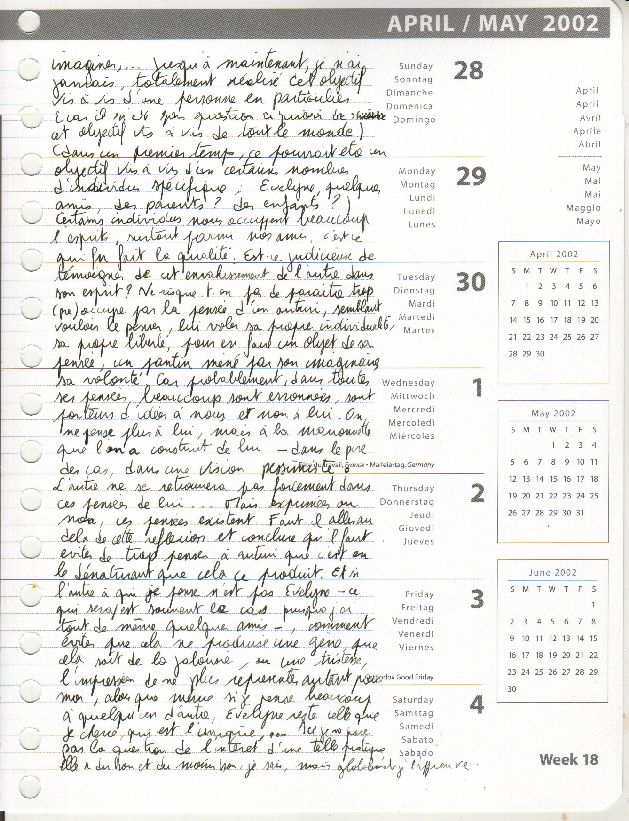 APRIL / MAY 2002
imagines,... jusqu'à maintenant, je n'ai
jamais, totalement réalisé cet objectif
vis à vis d'une personne en particulier
(car il n'est pas question d'avoir
cet objectif vis à vis de tout le monde)
(dans un premier temps, ce pourrait être un
objectif vis à vis d'un certain nombre
d'individus spécifique. Evelyne, quelques
amis, des parents? des enfants?)
Certains individus nous occupent beaucoup
l'esprit, surtout parmi nos amis, c'est ce
qui en fait la qualité. Est-ce judicieux de
témoigner de cet envahissement de l'autre dans
son esprit? Ne risque-t-on pas de paraître trop
(pré)occupé par la pensée d'un autrui, semblant
vouloir le penser, lui voler sa propre individualité,
sa propre liberté, pour en faire un objet de sa
pensée, un pantin mené par son imaginaire
sa volonté. Car probablement, dans toutes
ses pensées, beaucoup sont erronées, sont
porteurs d'idées à nous et non à lui. On
ne pense plus à lui, mais à la marionnette
que l'on a construit de lui - dans le pire
des cas, dans une vision pessimiste.
L'autre ne se retrouvera pas forcément dans
ces pensées de lui... Mais exprimées ou
non, ces pensées existent. Faut il aller au
delà de cette réflexion et conclure qu'il faut
éviter de trop penser à autrui que c'est en
le dénaturant que cela se produit. Et si
l'autre à qui je pense n'est pas Evelyne - ce
qui serait souvent le cas puisque j'ai
tout de même quelques amis -, comment
éviter que cela ne produise une gêne, que
cela soit de la jalousie, ou une tristesse,
l'impression de ne plus représenter autant pour
moi, alors que même si je pense beaucoup
à quelqu'un d'autre, Evelyne reste celle que
je chéris, qui est l'unique,
pas la question de l'intérêt d'une telle pratique
Elle a du bon et du moins bon, je sais, mais globalement j'approuve.
Sunday
Sonntag
Dimanche
Domenica
Domingo
28
Monday
Montag
Lundi
Lunedì
Lunes
29
Tuesday
Dienstag
Mardi
Martedì
Martes
30
Wednesday
Mittwoch
Mercredi
Mercoledì
Miércoles
1
France • Maifeiertag, Germany
Thursday
Donnerstag
Jeudi
Giovedì
Jueves
2
Friday
Freitag
Vendredi
Venerdì
Viernes
3
Good Friday
Saturday
Samstag
Samedi
Sabato
Sábado
4
April
April
Avril
Aprile
Abril
May
Mai
Mai
Maggio
Mayo
April 2002
S M T W T F S
1 2 3 4 5 6
7 8 9 10 11 12 13
14 15 16 17 18 19 20
21 22 23 24 25 26 27
28 29 30
May 2002
S M T W T F S
1 2 3 4
5 6 7 8 9 10 11
12 13 14 15 16 17 18
19 20 21 22 23 24 25
26 27 28 29 30 31
June 2002
S M T W T F S
1
2 3 4 5 6 7 8
9 10 11 12 13 14 15
16 17 18 19 20 21 22
23 24 25 26 27 28 29
30
Week 18